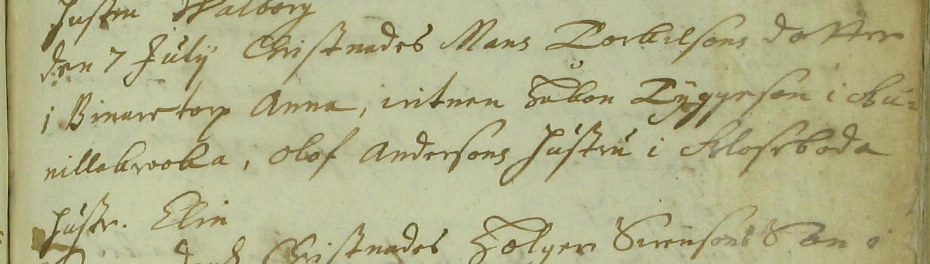 hustru Walborg
den 7 Julij Christnades Måns Torkilsons dotter
i Binaretorp Anna, vitnen Håkon Tyggeson i Gu-
nillakrooka, Olof Andersons hustru i Klossboda
hustr. Elin
Christnades Holger Svensons Son i